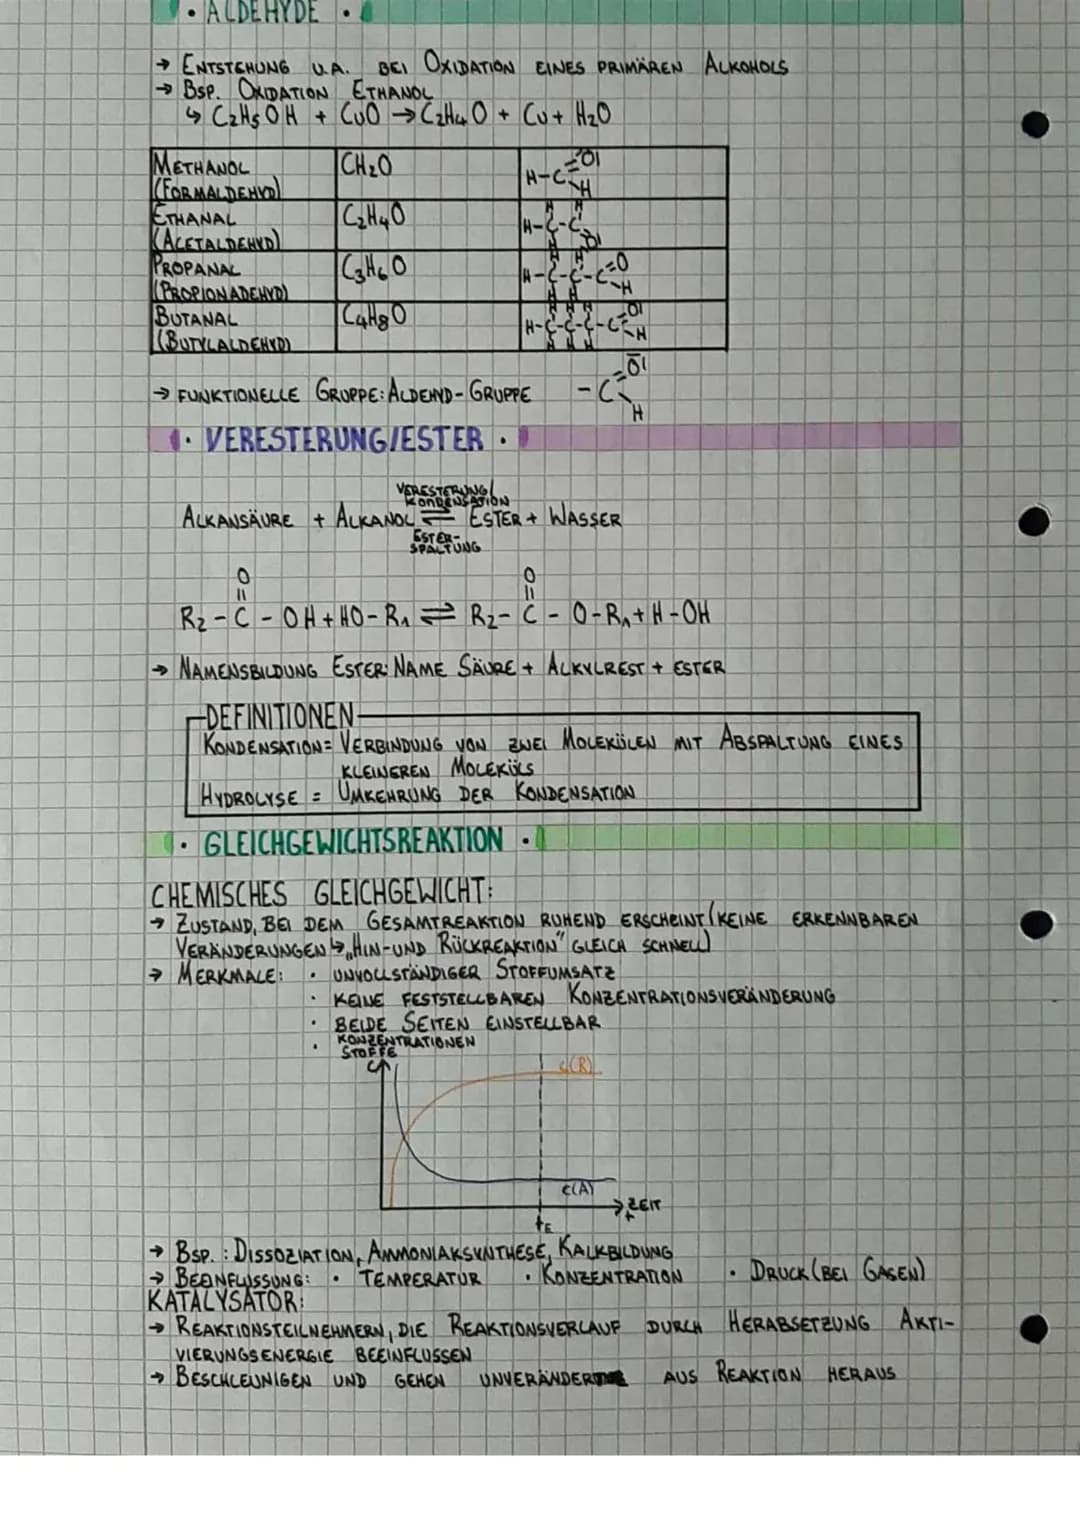 • ALDEHYDE •
→ ENTSTEHUNG U.A. BEI OXIDATION EINES PRIMÄREN ALKOHOLS
→ BSP. OXIDATION ETHANOL
↳ C2H5OH + CuO → C2H4O + Cu + H2O
METHANOL (FORMALDEHYD) CH2O
ETHANAL (ACETALDEHYD) C2H4O
PROPANAL (PROPIONADEHYD) C3H6O
BUTANAL (BUTYLALDEHYD) C4H8O
→ FUNKTIONELLE GRUPPE: ALDEHYD-GRUPPE
• VERESTERUNG/ESTER •
VERESTERUNG/
KONDENSATION
ALKANSÄURE + ALKANOL ⇌ ESTER + WASSER
ESTER-
SPALTUNG
O O
|| ||
R2 - C - OH + HO - R1 ⇌ R2 - C - O - R1 + H - OH
→ NAMENSBILDUNG ESTER: NAME SÄURE + ALKYLREST + ESTER
DEFINITIONEN
KONDENSATION = VERBINDUNG VON ZWEI MOLEKÜLEN MIT ABSPALTUNG EINES
KLEINEREN MOLEKÜLS
HYDROLYSE = UMKEHRUNG DER KONDENSATION
• GLEICHGEWICHTSREAKTION •
CHEMISCHES GLEICHGEWICHT:
→ ZUSTAND, BEI DEM GESAMTREAKTION RUHEND ERSCHEINT (KEINE ERKENNBAREN
VERÄNDERUNGEN ↳ „HIN-UND RÜCKREAKTION" GLEICH SCHNELL)
→ MERKMALE: • UNVOLLSTÄNDIGER STOFFUMSATZ
• KEINE FESTSTELLBAREN KONZENTRATIONSVERÄNDERUNG
• BEIDE SEITEN EINSTELLBAR
• KONZENTRATIONEN
STOFFE
c
c(R)
c(A)
ZEIT
t
tE
→ BSP.: DISSOZIATION, AMMONIAKSYNTHESE, KALKBILDUNG
→ BEEINFLUSSUNG: • TEMPERATUR • KONZENTRATION • DRUCK (BEI GASEN)
KATALYSATOR:
→ REAKTIONSTEILNEHMERN, DIE REAKTIONSVERLAUF DURCH HERABSETZUNG AKTI-
VIERUNGSENERGIE BEEINFLUSSEN
→ BESCHLEUNIGEN UND GEHEN UNVERÄNDERT AUS REAKTION HERAUS